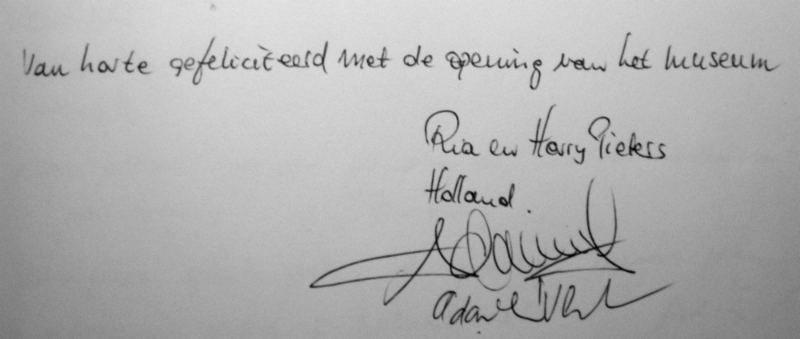 Van harte gefeliciteerd met de opening van het museum
Ria en Harry Pieters
Holland.